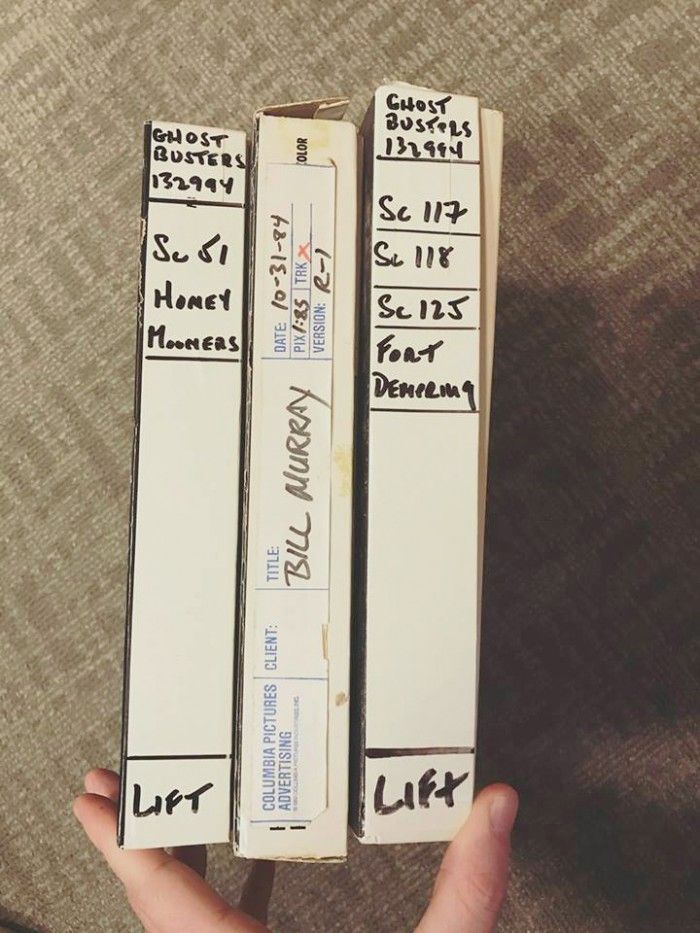 GHOST
BUSTERS
132994
Sc 51
HONEY
MOONERS
LIFT
OLOR
DATE: 10-31-84
PIX 1:85 TRK X
VERSION: R-1
TITLE: BILL MURRAY
CLIENT:
COLUMBIA PICTURES
ADVERTISING
GHOST
BUSTERS
132994
Sc 117
Sc 118
Sc 125
FORT
DEMERING
LIFT